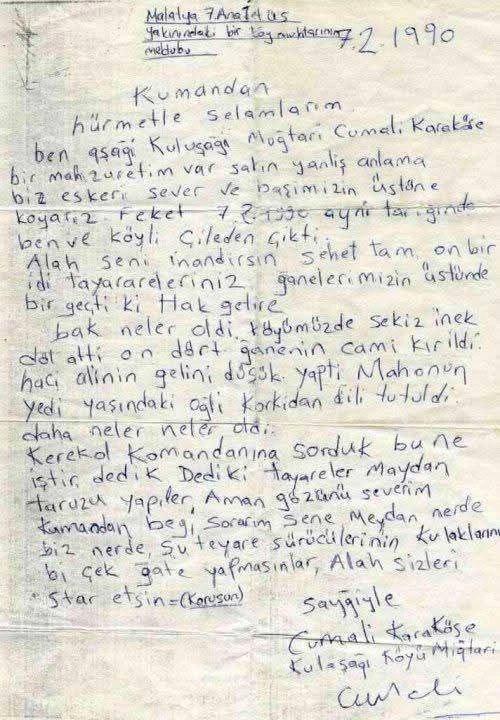 Malatya 7. Ana Jet Üs
yakınındaki bir köy muhtarının
mektubu
7.2.1990
Kumandan
hürmetle selamlarım
ben aşaği Kuluşaği Muğtari Cumali Karaköse
bir mahzuretim var sakın yanliş anlama
biz eskeri sever ve başimizin üstüne
koyariz. Feket 7.2.1990 ayni tariğinde
ben ve köyli Çileden Çikti.
Alah seni inandirsin sehet tam on bir
idi tayarareleriniz ğanelerimizin üstünde
bir geçti ki Hak getire
bak neler oldi. köyümüzde sekiz inek
döl atti on dört ğanenin cami kırıldi.
haci alinin gelini düşük yapti Mahonun
yedi yaşındaki oğli korkidan dili tutuldi.
daha neler neler oldi.
Kerekol Komandanına sorduk bu ne
iştir, dedik Dediki tayareler Maydan
taruzu yapiler, Aman gözünü severim
Kumandan begi, Sorarim Sene Meydan nerde
biz nerde, Şu teyare sürücülerinin kulaklarını
bi çek ğate yapmasınlar, Alah sizleri
star etsin=(Korusun)
sayğiyle
Cumali Karaköse
Kulaşaği Köyü Miğtari
Cumali